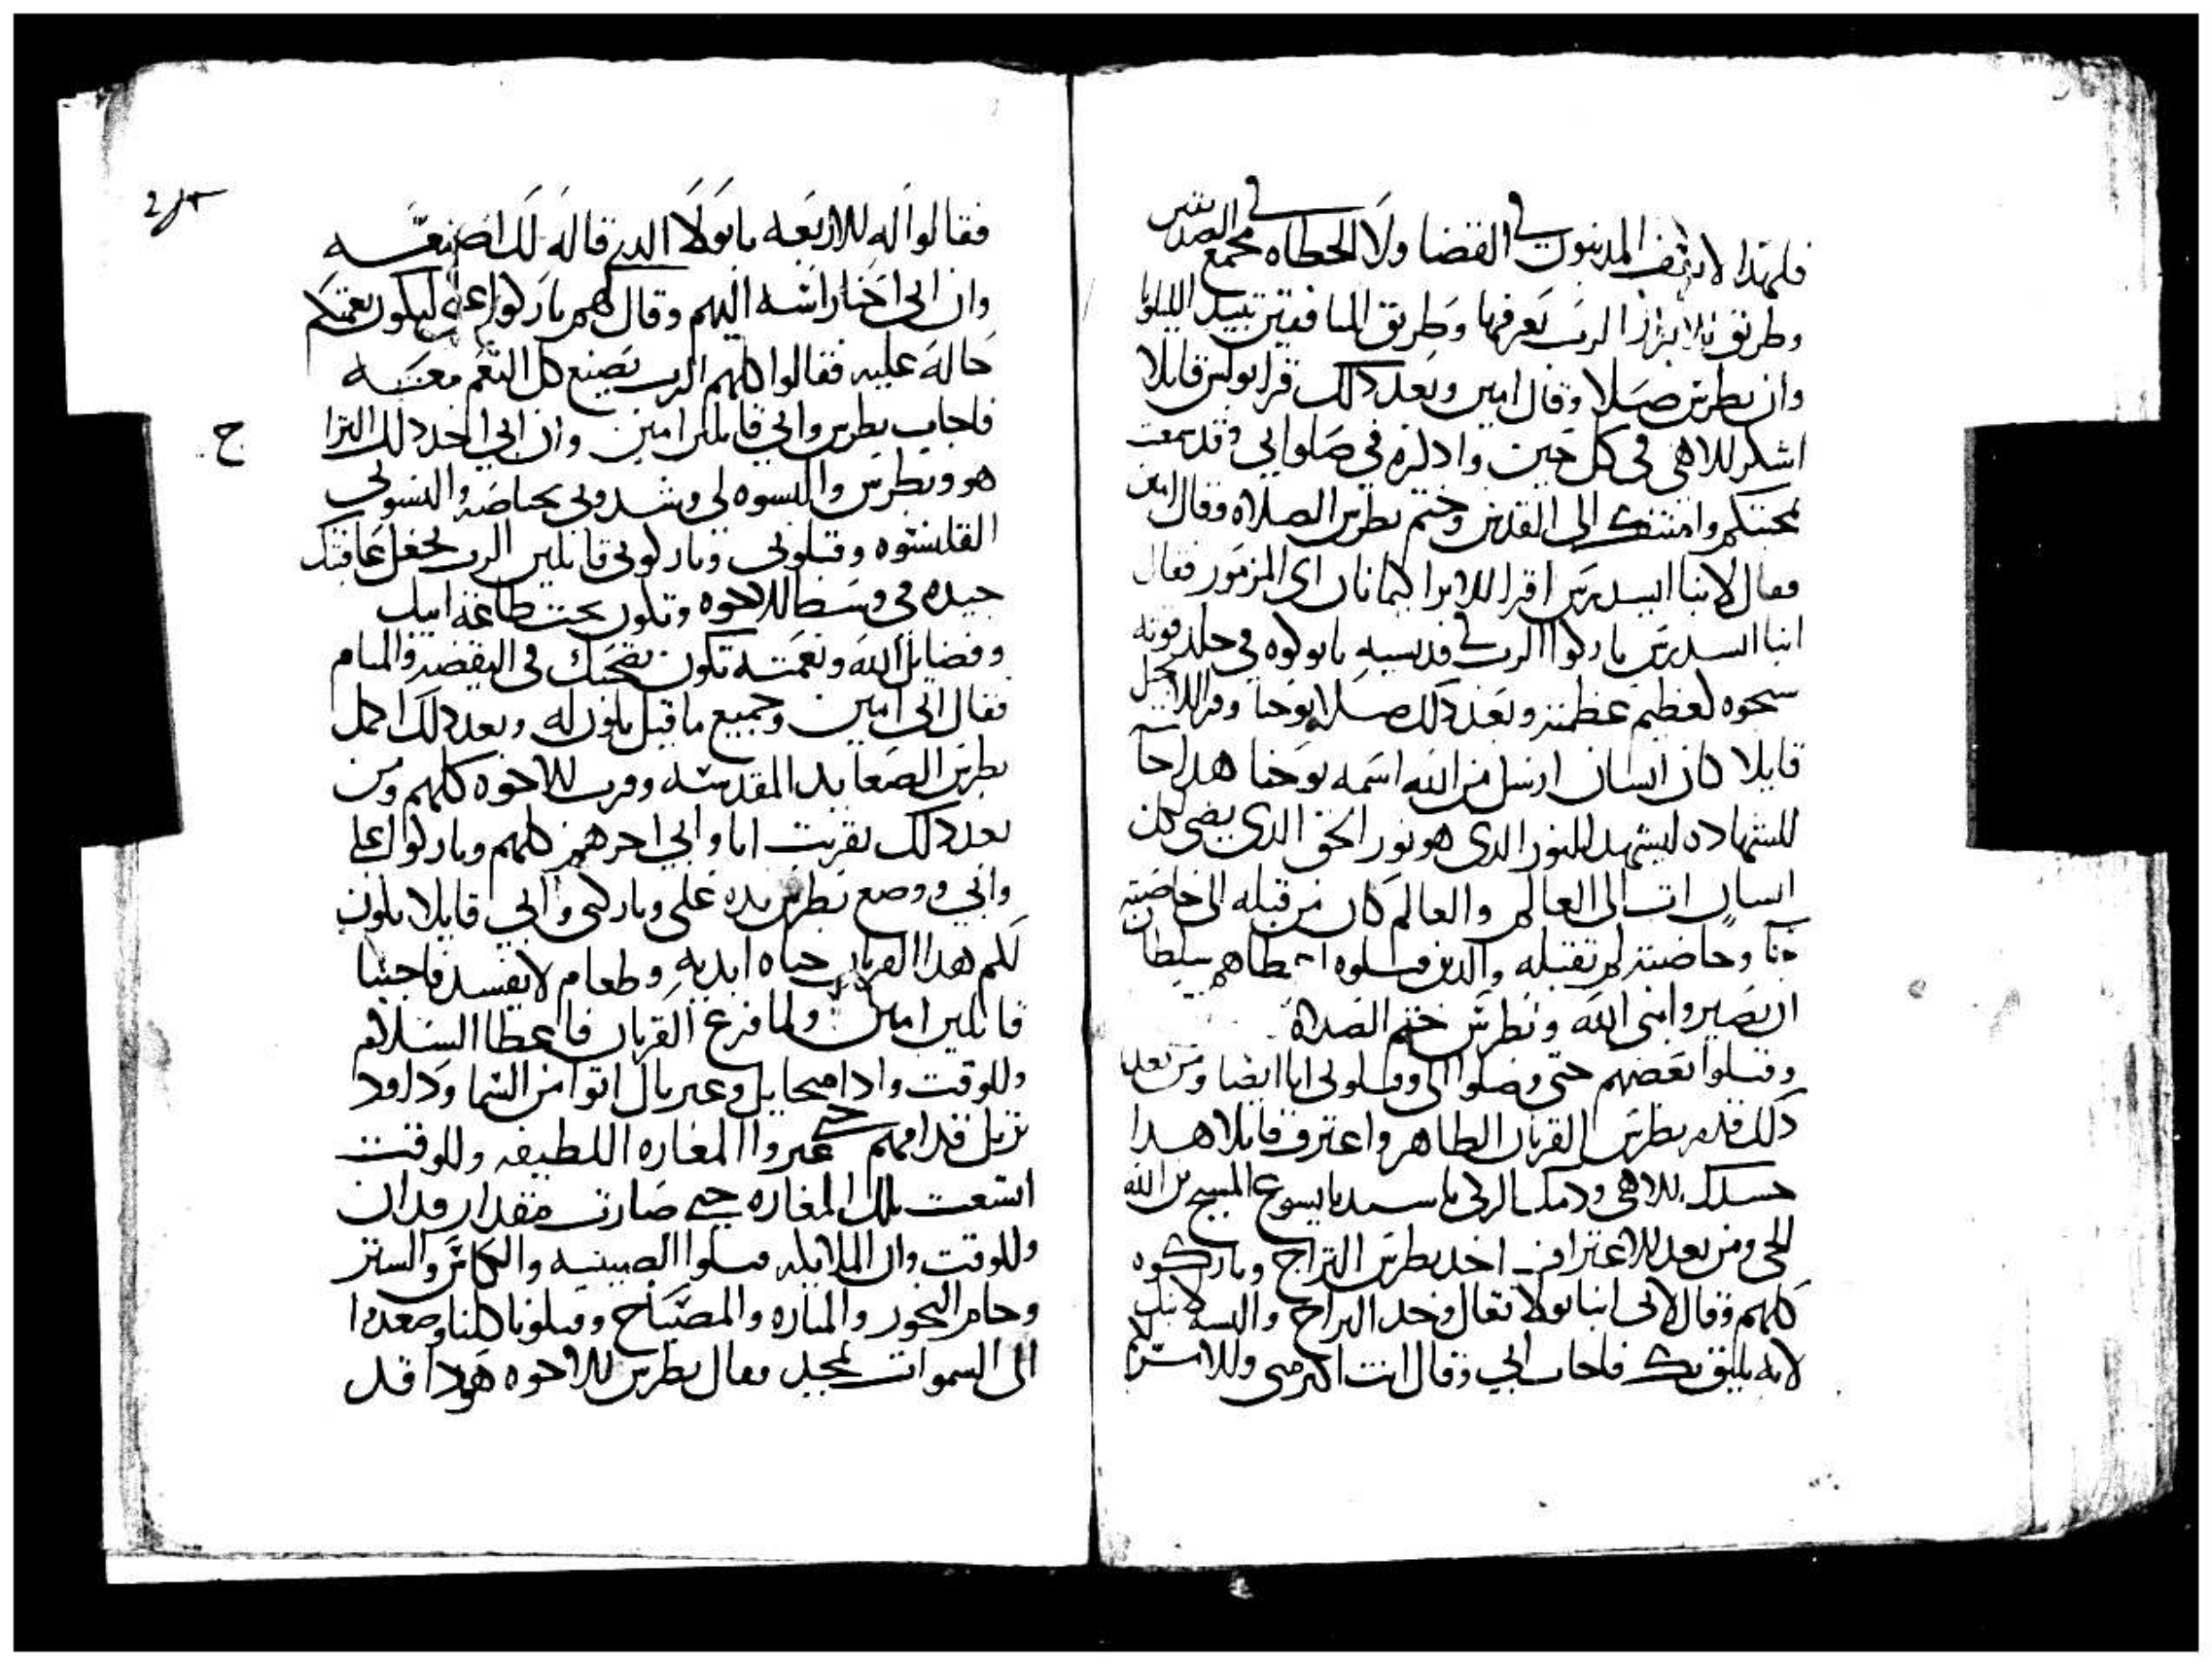 فلهدا لا يقف المدينون في القضا ولا الخطاه في مجمع الصديقين
وطريق الابرار الرب يعرفها وطريق المنافقين تبيد الليلويا
وان بطرس صلا وقال امين وبعد دلك قرا بولس قايلا
اشكر للاهي في كل حين وادكره في صلواتي وقد سمعت
بمحبتكم وامنتك الى القديس وختم بطرس الصلاه وقال امين
فقال لانبا ايسيدرس اقرا للابرا كيما نان اى المزمور فقال
انبا ايسيدرس باركوا الرب في قديسيه باركوه في جلد قوته
سبحوه لعظيم عظمته وبعد دلك صلا يوحنا وقرا الانجيل
قايلا كان انسان ارسل من الله اسمه يوحنا هدا جا
للشهاده ليشهد للنور الدى هو نور الحق الدى يضي لكل
انسان ات الى العالم والعالم كان من قبله الى خاصته
جا وخاصته لم تقبله والدين قبلوه اعطاهم سلطان
ان يصيروا بني الله وبطرس ختم الصلاه
وقبلوا بعضهم حتى وصلوا الى وقبلوني انا ايضا ومن بعد
دلك قدم بطرس القربان الطاهر واعترف قايلا هدا
جسدك للاهي ودمك الزكي يا سيد يا يسوع المسيح بن الله
الحي ومن بعد للاعتراف اخد بطرس التراج وباركوه
كلهم وقال لابي انبا بولا تعال وخد التراج والبسه لابنك
لانه يليق بك فاجاب ابي وقال انت اكبر مني وللا
فقالوا له للاربعه يا بولا الدي قاله لك اصنعه
وان ابي اختار اشه اليهم وقال لهم باركوا عليه ليكون نعمتكم
حاله عليه فقالوا كلهم الرب يصنع كل النعم معنه
فاجاب بطرس وابي قايلين امين وان ابي اخد دلك التراج
هو وبطرس والبسوه لي وشدوني بحياضه والبسوني
القلنسوه وقبلوني وباركوني قايلين الرب يجعل عاقبتك
جيده في وسط للاخوه وتكون تحت طاعة ابيك
وفضايل الله ونعمته تكون بصحبتك في اليقضه والمنام
فقال ابي امين وجميع ما قيل يكون له وبعد دلك احمل
بطرس الصعايد المقدسه وقرب للاخوه كلهم ومن
بعد دلك تقربت انا وابي اخرهم كلهم وباركوا علي
وابي ووضع بطرس يده علي وباركني وابي قايلا يكون
لكم هدا القربان حياه ابديه وطعام لا يفسد فاجبنا
قايلين امين ولما فرغ القربان فاعطا السلام
وللوقت وادا ميخاييل وغبريال اتوا من السما وداود
يرتل قدامهم حتى عبروا المغاره اللطيفه وللوقت
اتسعت تلك المغاره حتى صارت مقدار ودان
وللوقت وان الملايكه قبلوا الصينيه والكاس والستر
وجامر البخور والمناره والمصباح وقبلونا كلنا وصعدوا
الى السموات بمجد فقال بطرس للاخوه هودا قد
ح